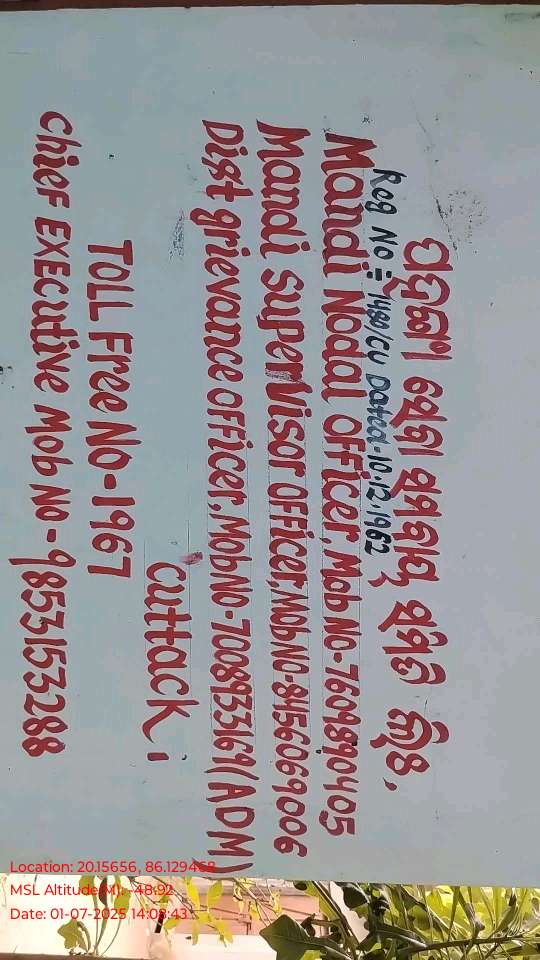 ସେବା ସମବାୟ ସମିତି ଲିଃ,
Reg No = 1480/CU Dated-10.12.1962
Mandi Nodal officer, Mob No-7609890405
Mandi supervisor officer, Mob No-8456069006
Dist grievance officer, Mob No-7008933169(ADM)
cuttack.
TOLL Free No-1967
chief Executive Mob No-9853153288
Location: 20.15656, 86.129468
MSL Altitude(M): -48.92
Date: 01-07-2025 14:08:43